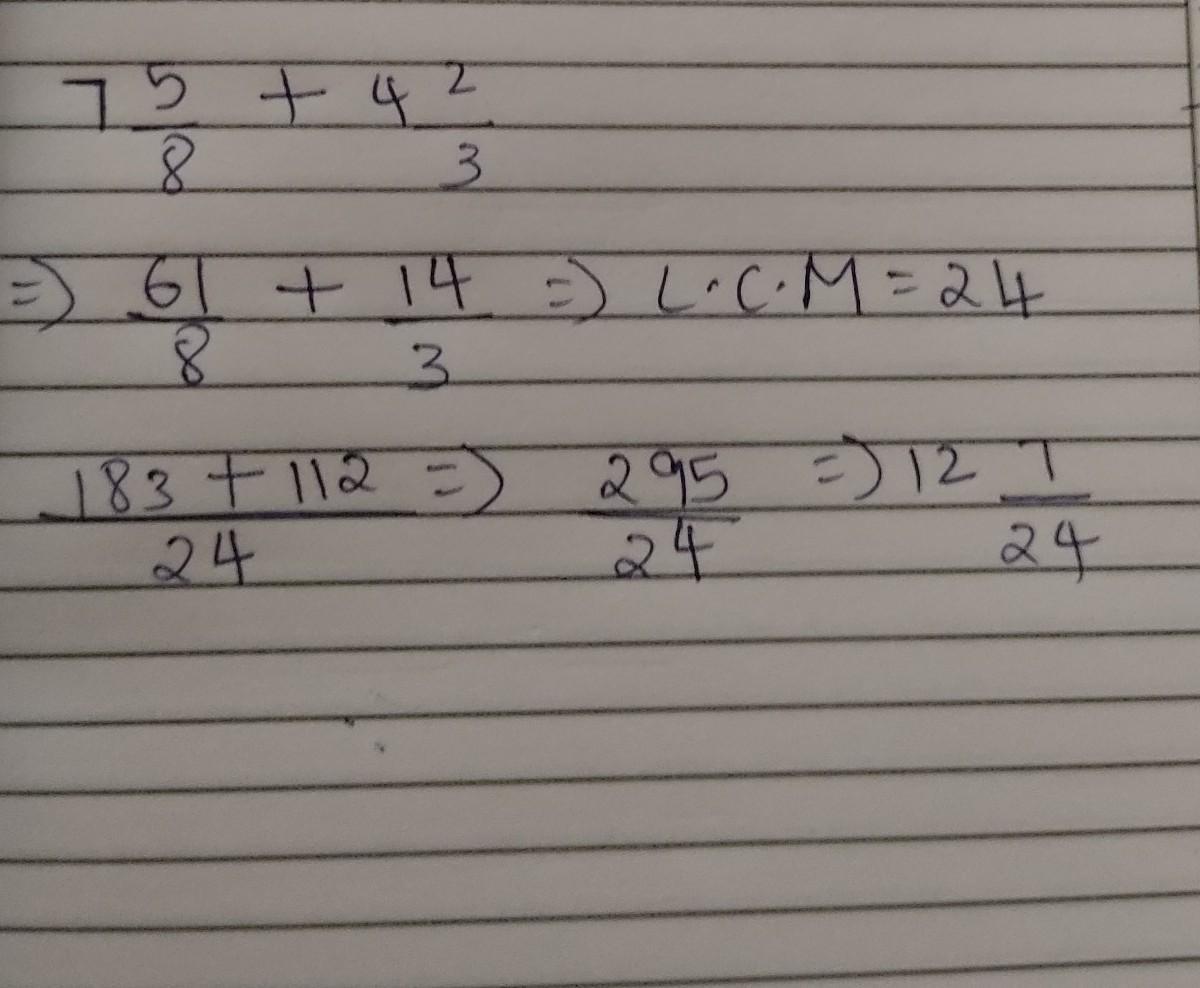 7 5/8 + 4 2/3
=) 61/8 + 14/3 =) L.C.M = 24
183 + 112/24 =) 295/24 =) 12 7/24